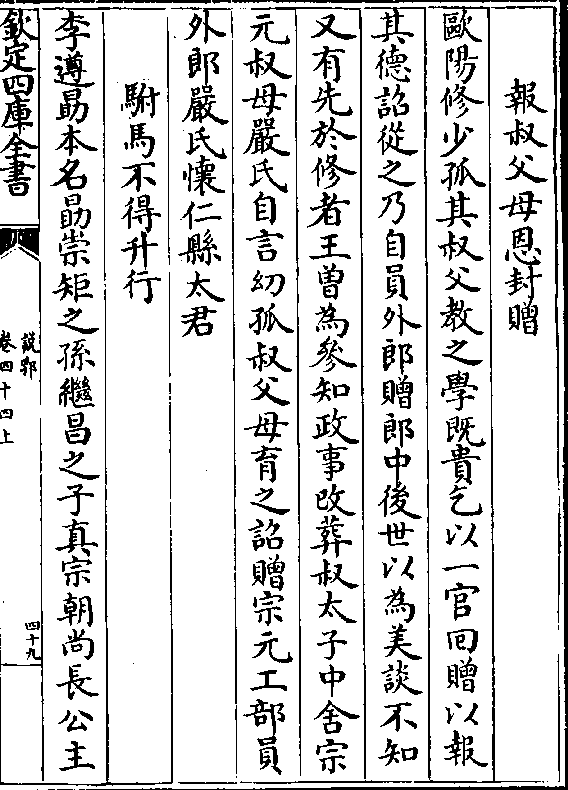 報叔父母恩封贈
歐陽修少孤其叔父教之學既貴乞以一官回贈以報
其德詔從之乃自員外郎贈郎中後世以為美談不知
又有先於修者王曽為參知政事改葬叔太子中舍宗
元叔母嚴氏自言幼孤叔父母育之詔贈宗元工部員
外郎嚴氏懷仁縣太君
駙馬不得升行
李遵勗本名勗崇矩之孫繼昌之子真宗朝尚長公主
欽定四庫全書
說郛
卷四十四上
四十九